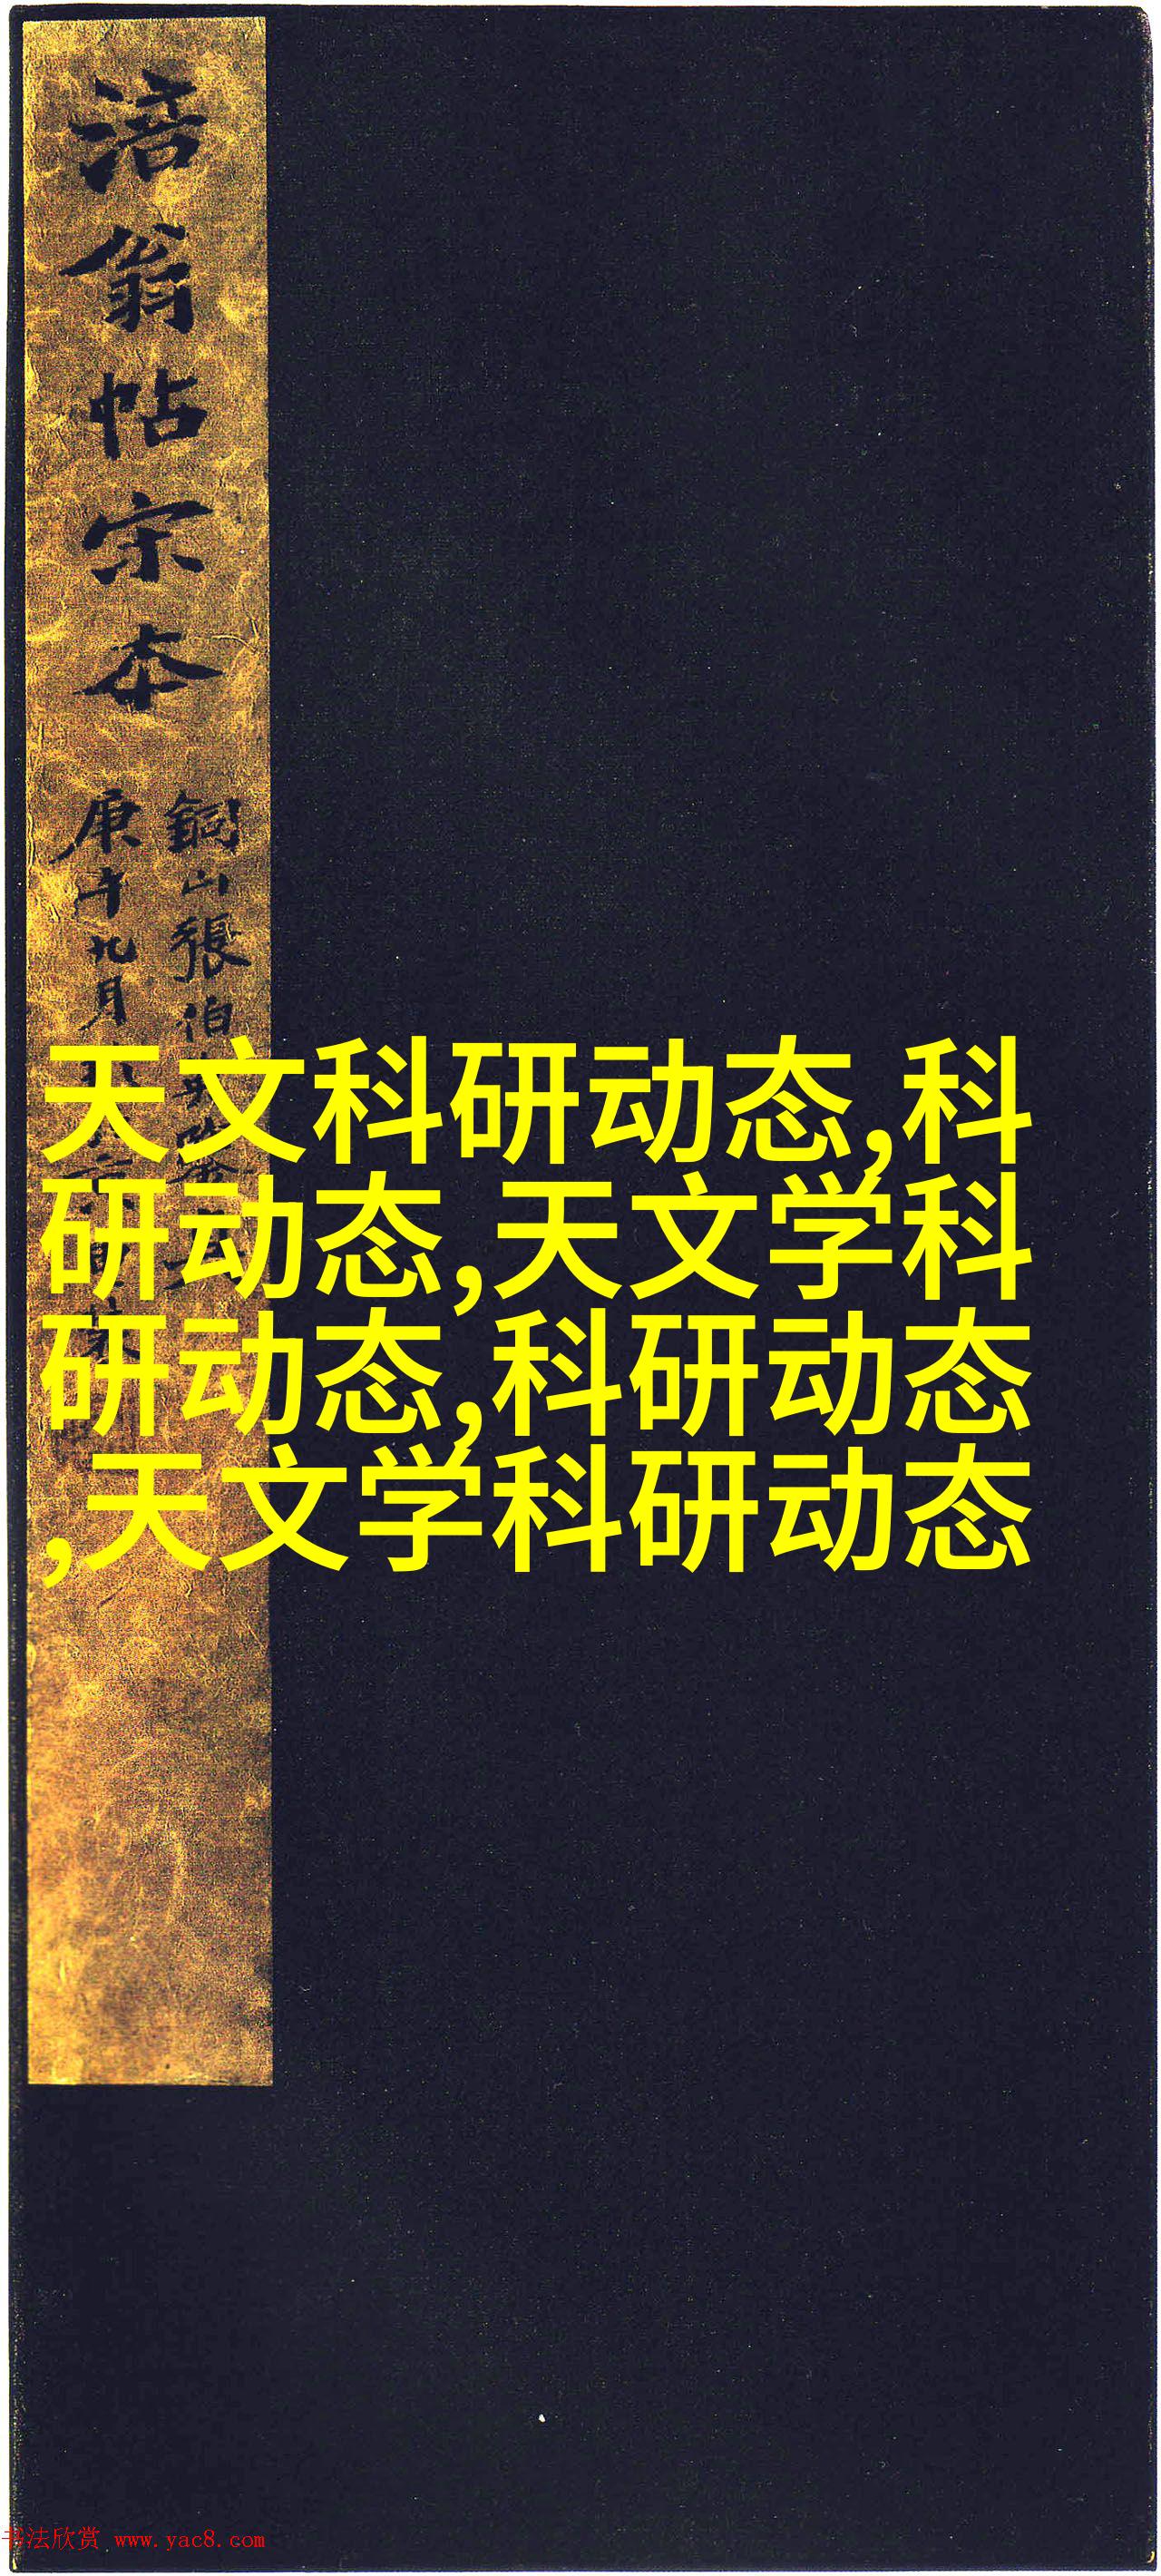 涪翁帖宋本
銅山張伯
庚午九月
天文科研动态,科
研动态,天文学科
研动态,科研动态
,天文学科研动态
书法欣赏 www.yac8.com